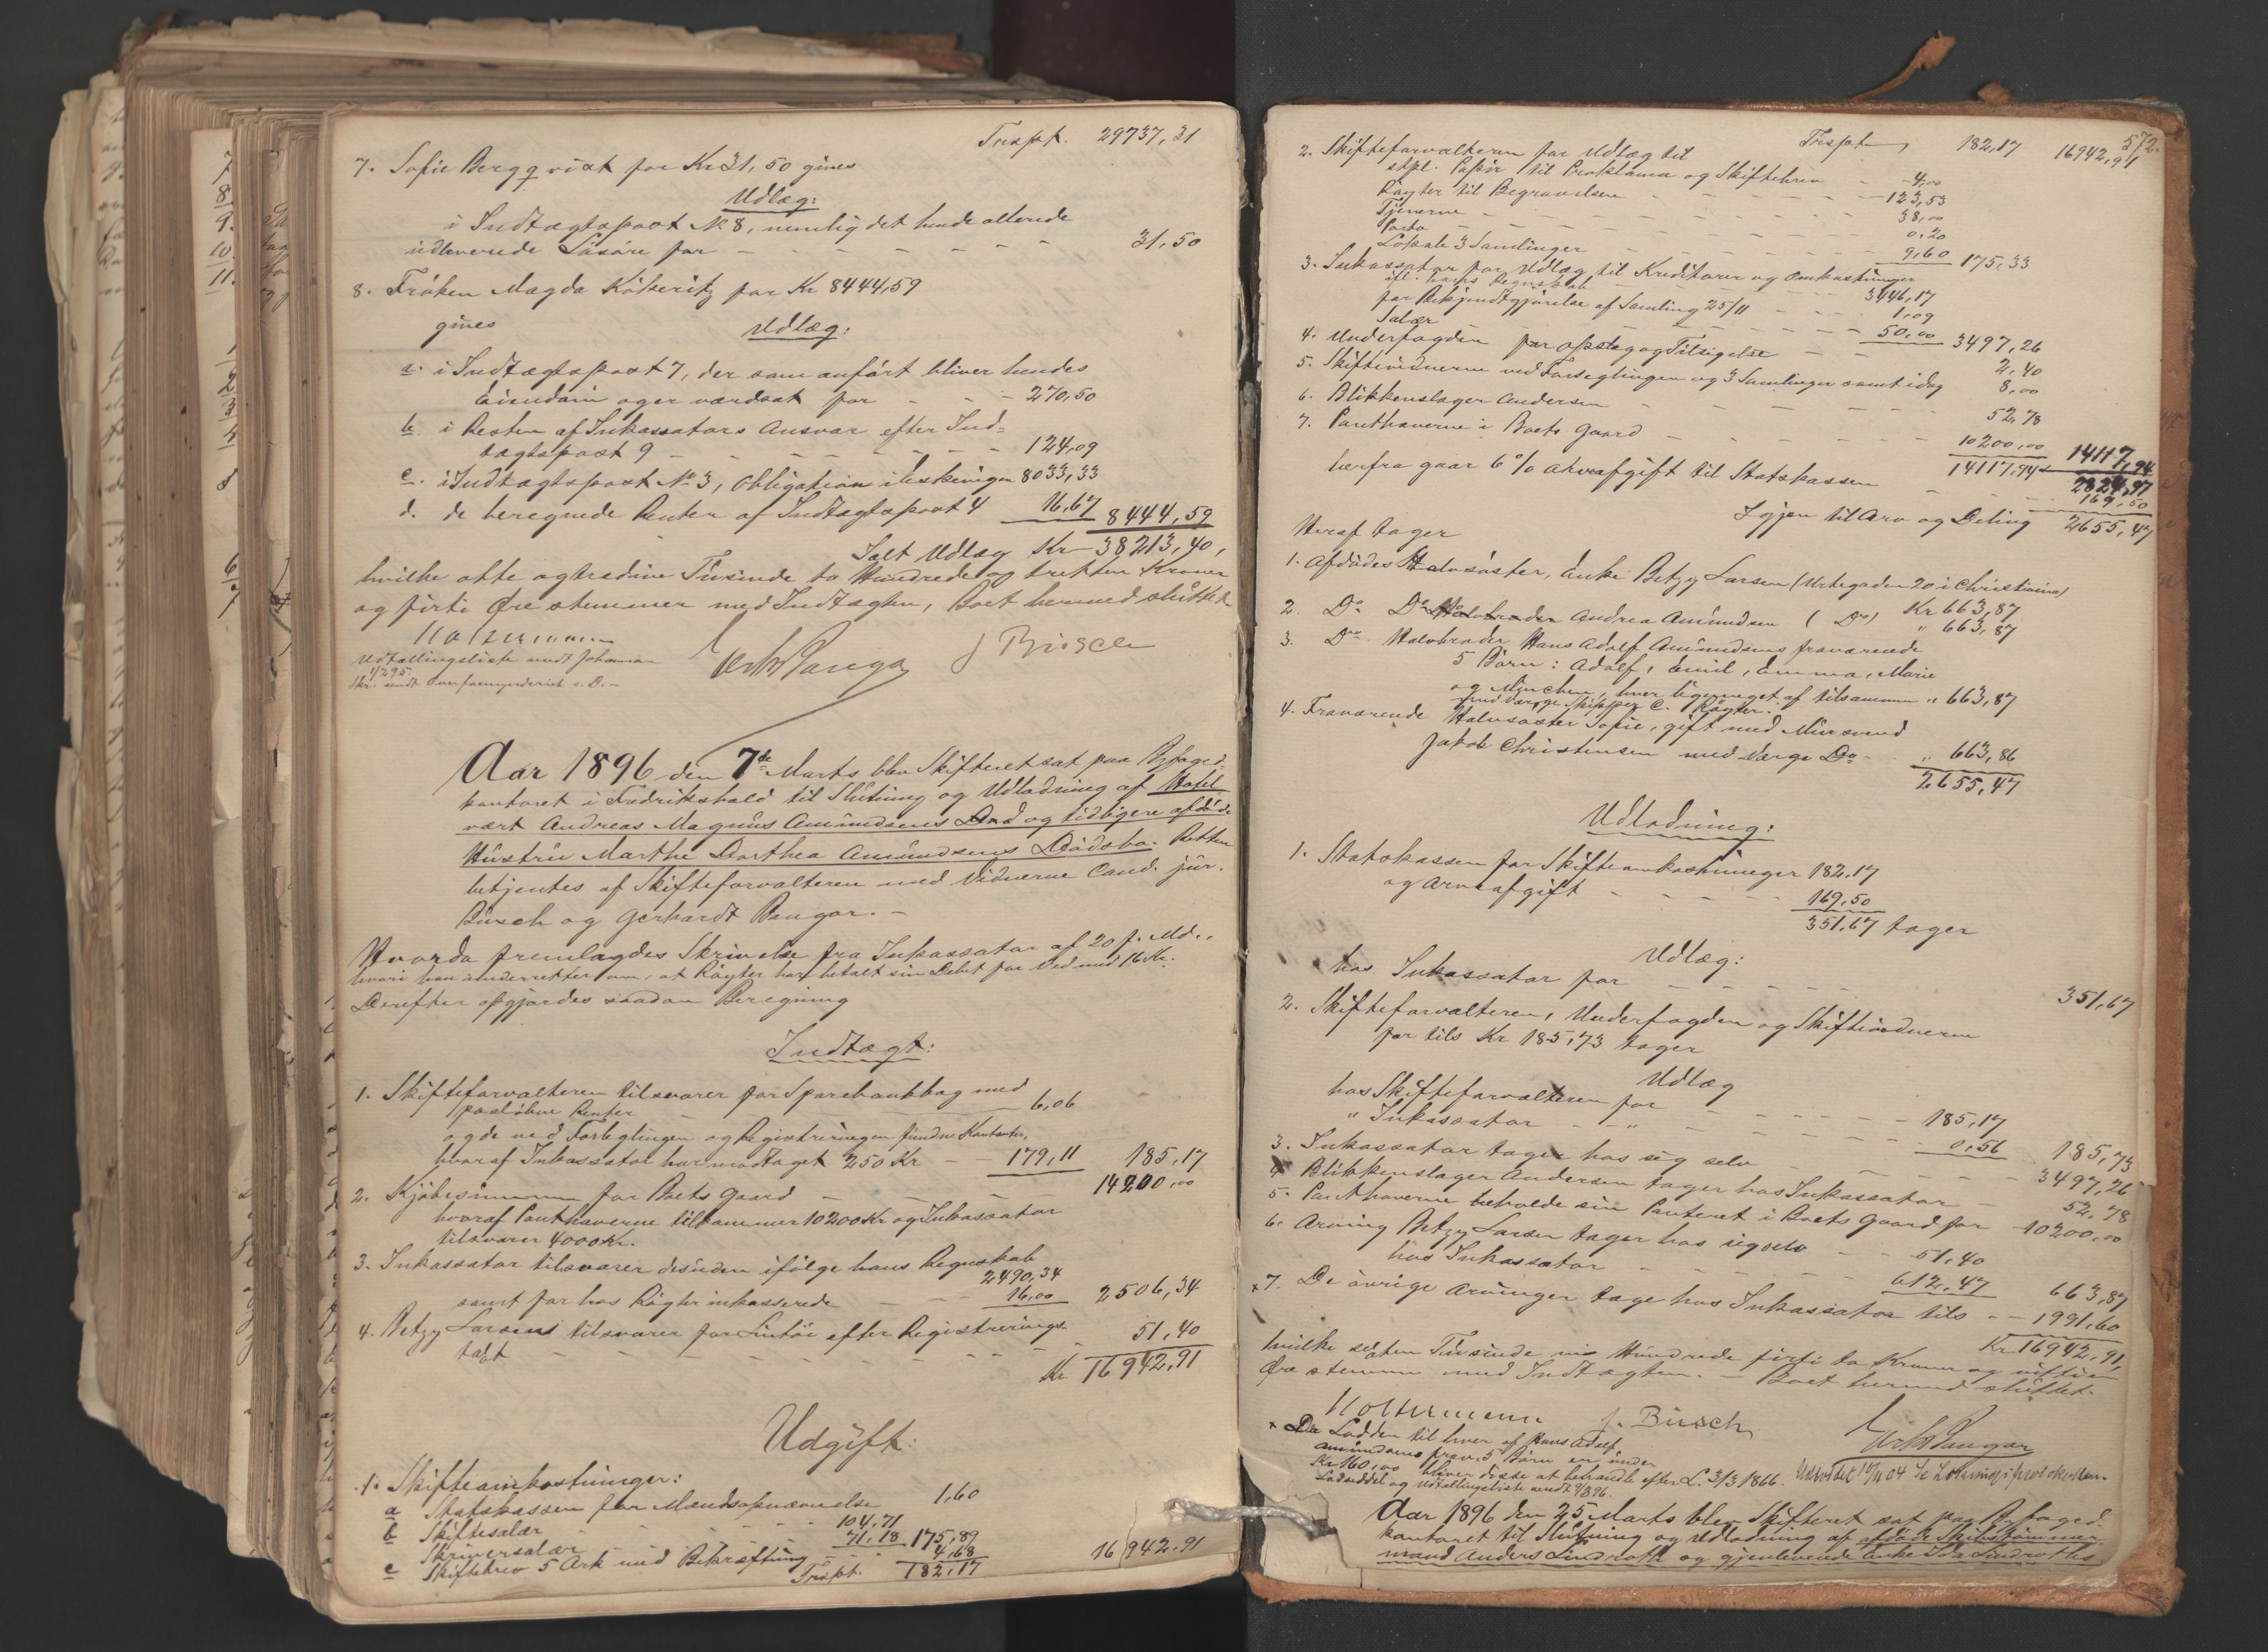 Trspt. 29737,31
7. Sofie Bergqvist for Kr 31,50 gives
Udlæg:
i Indtægtspost № 8, nemlig det hende allerede
udleverede Løsøre for - - - - - - 31,50
8. Frøken Magda Køkeritz for Kr 8444,59
gives Udlæg:
a. i Indtægtspost 7, der som anført bliver hendes
Eiendom og er værdsat for - - - 270,50
b. i Resten af Inkassators Ansvar efter Ind-
tægtspost 9 - - - - - - 124,09
c. i Indtægtspost № 3, Obligation 8033,33
d. de beregnede Renter af Indtægtspost 4 16,67 8444,59
Ialt Udlæg Kr 38213,40,
hvilke otte og tredive Tusinde to Hundrede og tretten Kroner
og førti Øre stemmer med Indtægten, Boet hermed sluttet
Holtermann
Udtællingsliste sendt Johannsen
J Büsch
Skr. sendt Overformynderiet s. D. -
Aar 1896 den 7de Marts blev Skifteret sat paa Byfoged-
kontoret i Fredrikshald til Slutning og Udlodning af Hotel-
vært Andreas Magnus Amundsens Død og tidligere afdøde
Hustru Marthe Dorthea Amundsens Dødsbo. Retten
betjentes af Skifteforvalteren med Vidnerne Cand. jur.
Büsch og Gerhardt Bangor. -
Hvorda fremlagdes Skrivelse fra Inkassator af 20 f. Md.,
hvori han underretter om, at Røgter har betalt sin Debet for Ved med 16 Kr.
Derefter opgjordes saadan Beregning
Indtægt:
1. Skifteforvalteren tilsvarer for Sparebankbog med
paaløbne Renter 6,06
og de ved Forseglingen og Registreringen fundne Kontanter,
hvoraf Inkassator har modtaget 250 Kr - - 179,11 185,17
2. Kjøbesummen for Boets Gaard - - - - 14200,00
hvoraf Panthaverne tilkommer 10200 Kr og Inkassator
tilsvarer 4000 Kr.
3. Inkassator tilsvarer desuden ifølge hans Regnskab
2490,34
samt for hos Røgter inkasserede - - - 16,00 2506,34
4. Betzy Larsens tilsvarer for Lintøi efter Registrerings-
takt - - - - - - - - 51,40
Kr 16942,91
Udgift:
1. Skifteomkostninger:
a Statskassen for Mændsopnævnelse 1,60
b Skiftesalær - - - - 104,71
Skriversalær - - - - 71,18 175,89
c Skiftebrev 5 Ark med Bekræftning - - 4,68
Trspt. 182,17 16942.91
572.
Trspt. 182,17 16942,91
2. Skifteforvalteren for Udlæg til
stpl. Papir til Proklama og Skiftebrev - 4,00
Røgter til Begravelsen - - - - 123,53
Tjenerne - - - - - 38,00
Porto - - - - - 0,20
Lokale 3 Samlinger - - - - 9,60 175,33
3. Inkassator for Udlæg til Kreditorer og Omkostninger
ifl. hans Regnskab - - - 3446,17
for Bekjendtgjørelse af Samling 25/11 - - - 1,09
Salær - - - - - - 50,00 3497,26
4. Underfogden for Opslag og Tilsigelse - - 2,40
5. Skiftevidnerne ved Forseglingen og 3 Samlinger samt idag 8,00
6. Blikkenslager Andersen - - - - - - 52,78
7. Panthaverne i Boets Gaard - - - - 10200,00
14117,94 14117,94
2824,97
herfra gaar 6 % Arveafgift til Statskassen - - 169,50
Igjen til Arv og Deling 2655,47
Heraf tager
1. Afdødes Halvsøster, Enke Betzy Larsen (Urtegaden 20 i Christiania)
Kr 663,87
2. Do Do Andrea Amundsen ( Do) " 663,87
3. Do Halvbroder Hans Adolf Amundsens fraværende
5 Børn: Adolf, Emil, Emma, Marie
og , hver ligemeget af tilsammen " 663,87
med Værge Skipper C. Røgter.
4. Fraværende Halvsøster Sofie, gift med Mursvend
Jakob Christensen med Værge Do - " 663,86
2655,47
Udlodning:
1. Statskassen for Skifteomkostninger 182.17
og Arveafgift - - - - - 169,50
351,67 tager
Udlæg:
hos Inkassator for - - - - - 351,67
2. Skifteforvalteren, Underfogden og Skiftevidnerne
for tils Kr 185,73 tager
Udlæg
hos Skifteforvalteren for - - - - - 185,17
" Inkassator - - " - - - - 0,56 185,73
3. Inkassator tager hos sig selv - - - - 3497,26
4. Blikkenslager Andersen tager hos Inkassator - 52,78
5. Panthaverne beholde sin Panteret i Boets Gaard for 10200,00
6. Arving Betzy Larsen tager hos sigselv - - 51,40
hos Inkassator - - - - 612,47 663,87
x7. De øvrige Arvinger tage hos Inkassator tils - - 1991,60
Kr 16942,91,
hvilke sexten Tusinde ni Hundrede førti to Kroner og nitti en
Øre stemme med Indtægten. - Boet hermed sluttet.
Holtermann J. Büsch
x Da Lodden til hver af Hans Adolf
Amundsens frav. 5 Børn er under
Kr 160,00 bliver disse at behandle efter L. 3/3 1866.
Loddseddel og Udtællingsliste sendt 9/3 96.
Aar 1896 den 25 Marts blev Skifteret sat paa Byfoged-
kontoret til Slutning og Udlodning af afdøde Skibstømmer-
mand Anders Lindroth og gjenlevende Enke Ida Lindroths